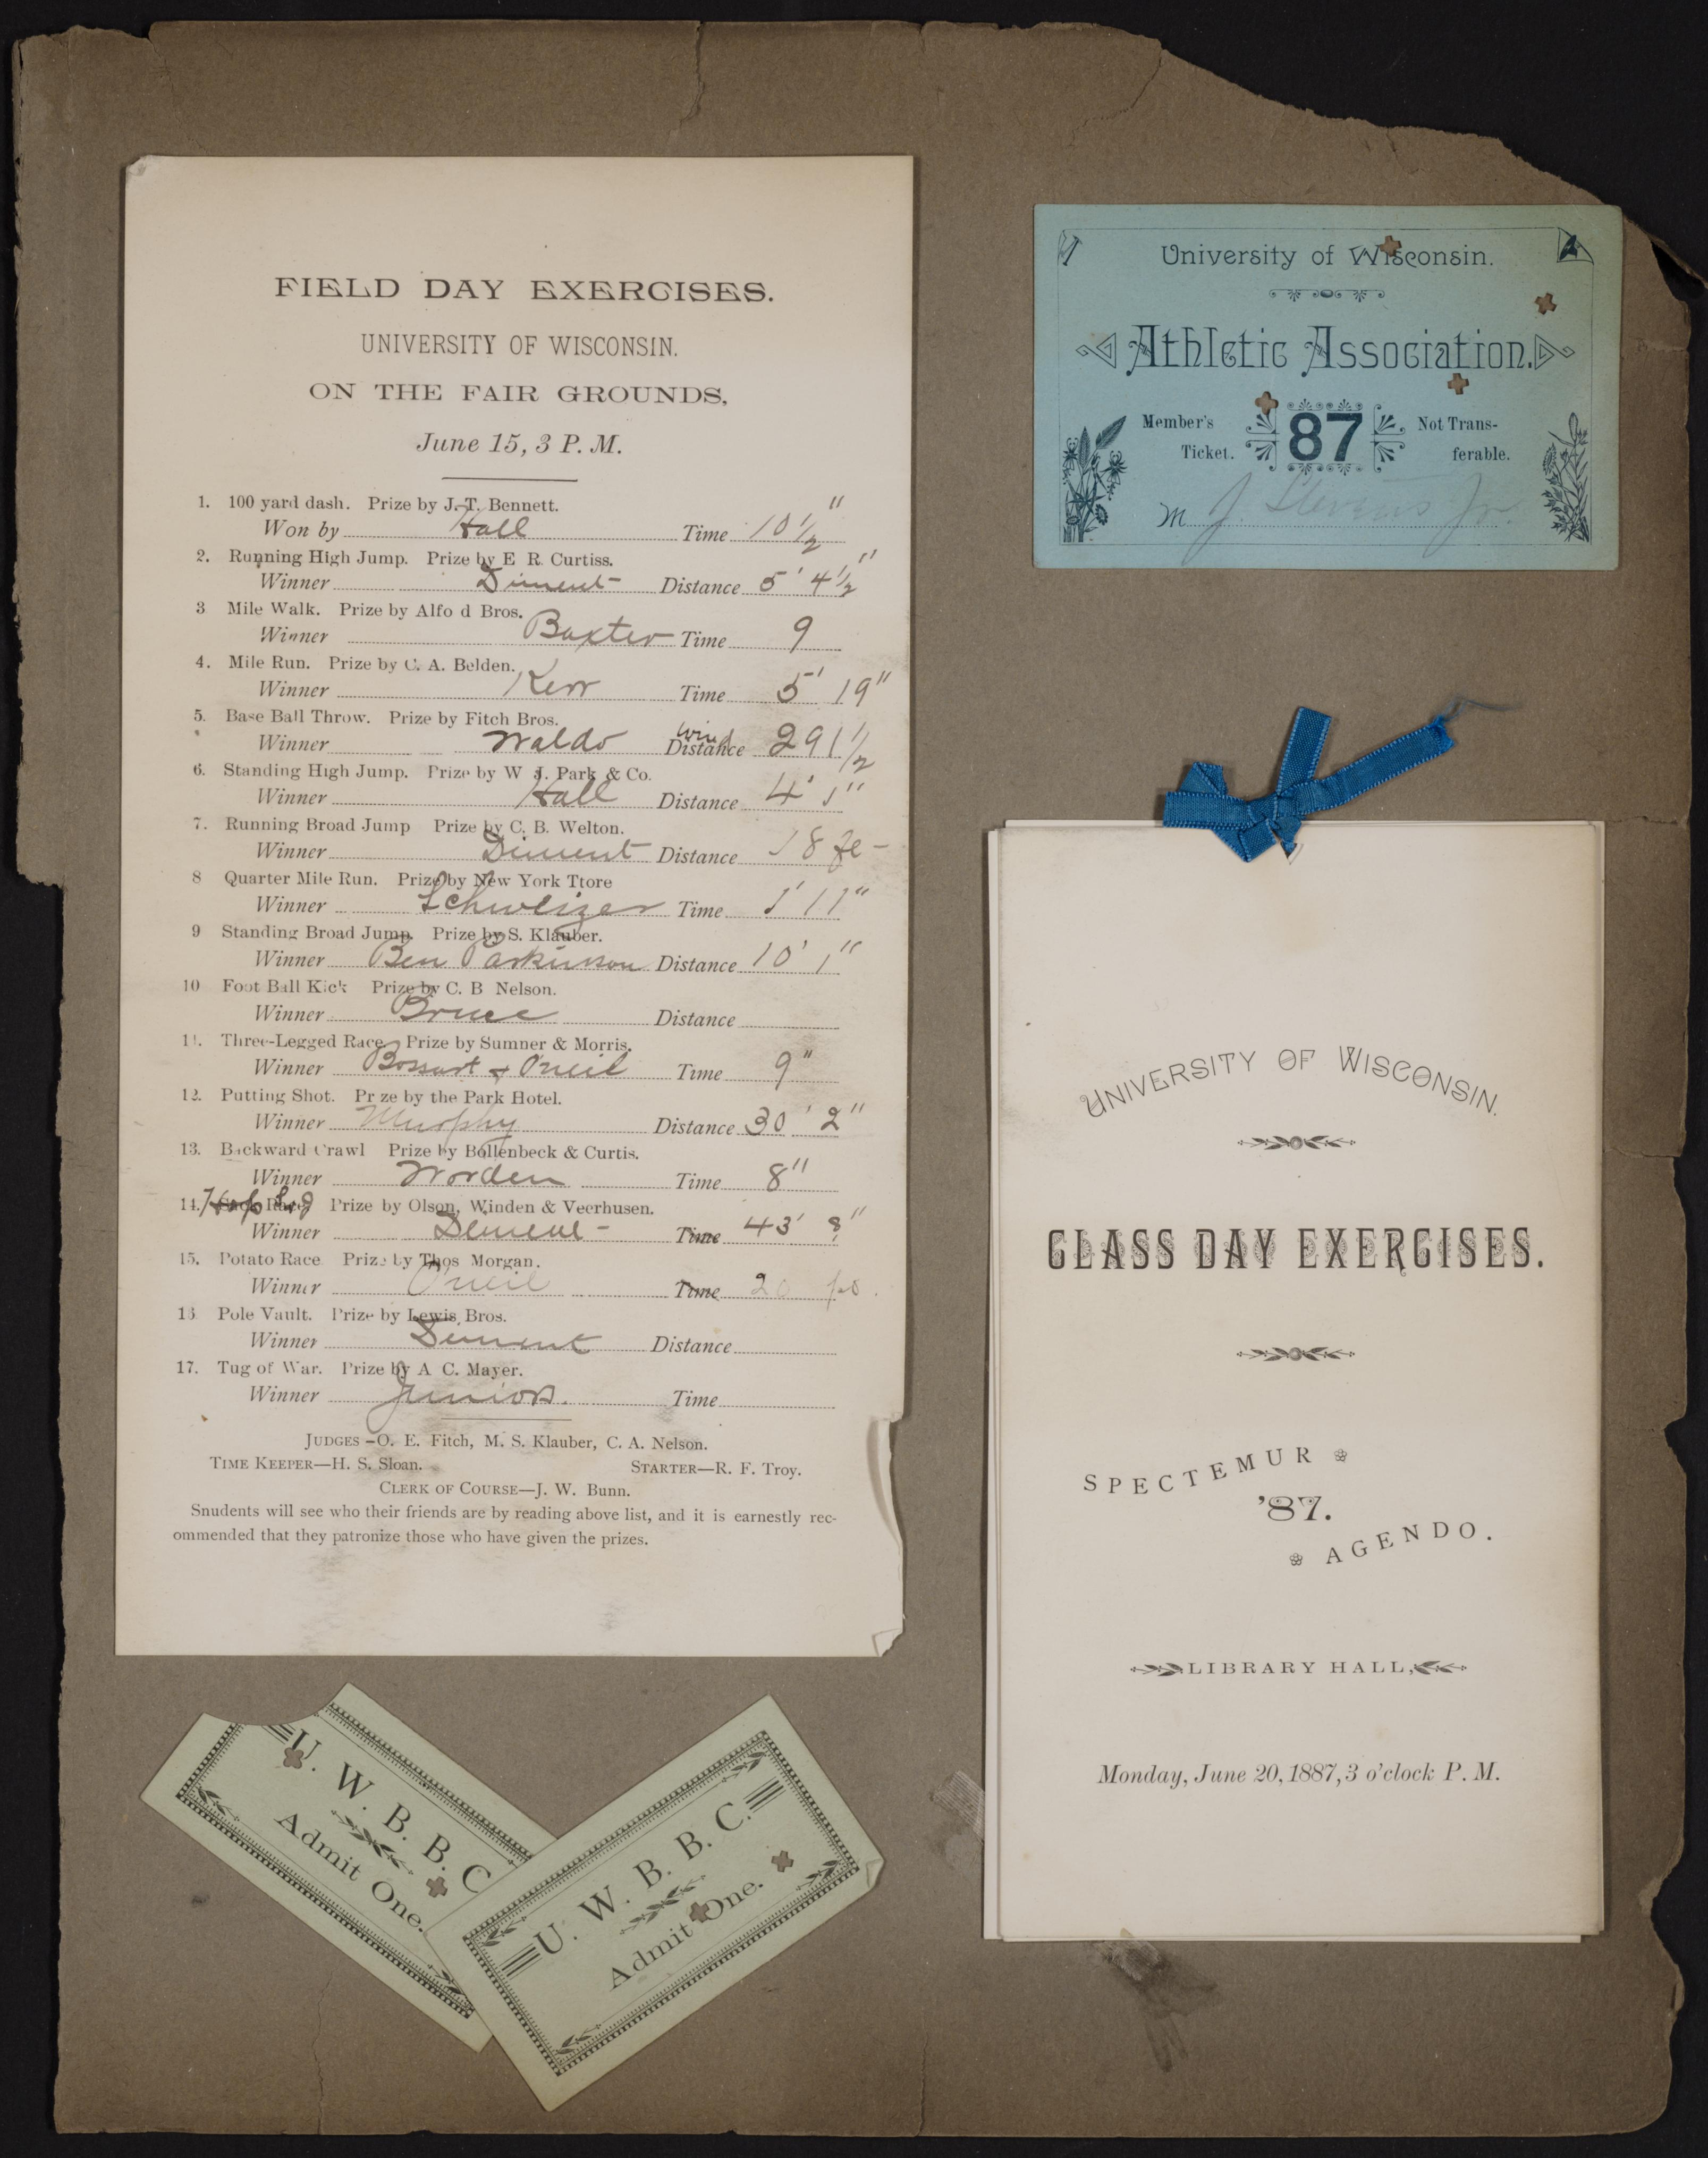 FIELD DAY EXERCISES.
UNIVERSITY OF WISCONSIN.
ON THE FAIR GROUNDS,
June 15, 3 P. M.
1. 100 yard dash. Prize by J. T. Bennett.
Won by Hall Time 10 1/2"
2. Running High Jump. Prize by E R. Curtiss.
Winner Diment Distance 5' 4 1/2"
3 Mile Walk. Prize by Alfo d Bros.
Winner Baxter Time 9
4. Mile Run. Prize by C. A. Belden.
Winner Kerr Time 5' 19"
5. Base Ball Throw. Prize by Fitch Bros.
Winner Waldo Wind Distance 291 1/2
6. Standing High Jump. Prize by W J. Park & Co.
Winner Hall Distance 4' 1"
7. Running Broad Jump Prize by C. B. Welton.
Winner Diment Distance 18
8 Quarter Mile Run. Prize by New York Ttore
Winner Schweizer Time 1' 11"
9 Standing Broad Jump. Prize by S. Klauber.
Winner Ben Parkinson Distance 10' 1"
10 Foot Ball Kick Prize by C. B Nelson.
Winner Bruce Distance
11. Three-Legged Race Prize by Sumner & Morris.
Winner Bossart & Oneil Time 9"
12. Putting Shot. Pr ze by the Park Hotel.
Winner Murphy Distance 30' 2"
13. Backward Crawl Prize by Bollenbeck & Curtis.
Winner Worden Time 8"
14. Sack Race Prize by Olson, Winden & Veerhusen.
Winner Diment Time 43' 8"
15. Potato Race Prize by Thos Morgan.
Winner Oneil Time 20
16. Pole Vault. Prize by Lewis Bros.
Winner Diment Distance
17. Tug of War. Prize by A C. Mayer.
Winner Juniors. Time
JUDGES—O. E. Fitch, M. S. Klauber, C. A. Nelson.
TIME KEEPER—H. S. Sloan. STARTER—R. F. Troy.
CLERK OF COURSE—J. W. Bunn.
Snudents will see who their friends are by reading above list, and it is earnestly rec-
ommended that they patronize those who have given the prizes.
University of Wisconsin.
Athletic Association.
Member's Ticket. 87 Not Trans-ferable.
M J. Stevens Jr.
UNIVERSITY OF WISCONSIN.
CLASS DAY EXERCISES.
SPECTEMUR
'87.
AGENDO.
LIBRARY HALL,
Monday, June 20, 1887, 3 o'clock P. M.
U. W. B. B. C
Admit One.
U. W. B. B. C.
Admit One.